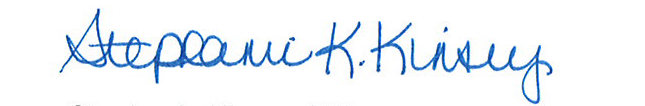 Stephanie K. Kinsey